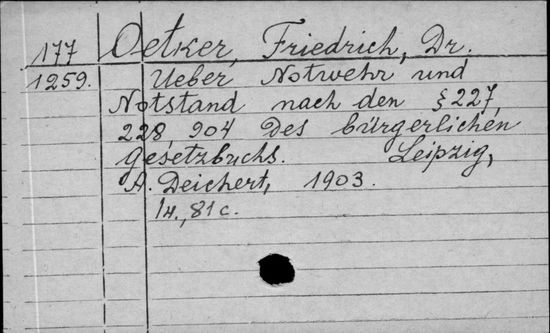 177 Oetker, Friedrich, Dr.
1259. Ueber Notwehr und
Notstand nach den § 227,
228, 904 des bürgerlichen
Gesetzbuchs. Leipzig,
A. Deichert, 1903.
IV., 81 c.